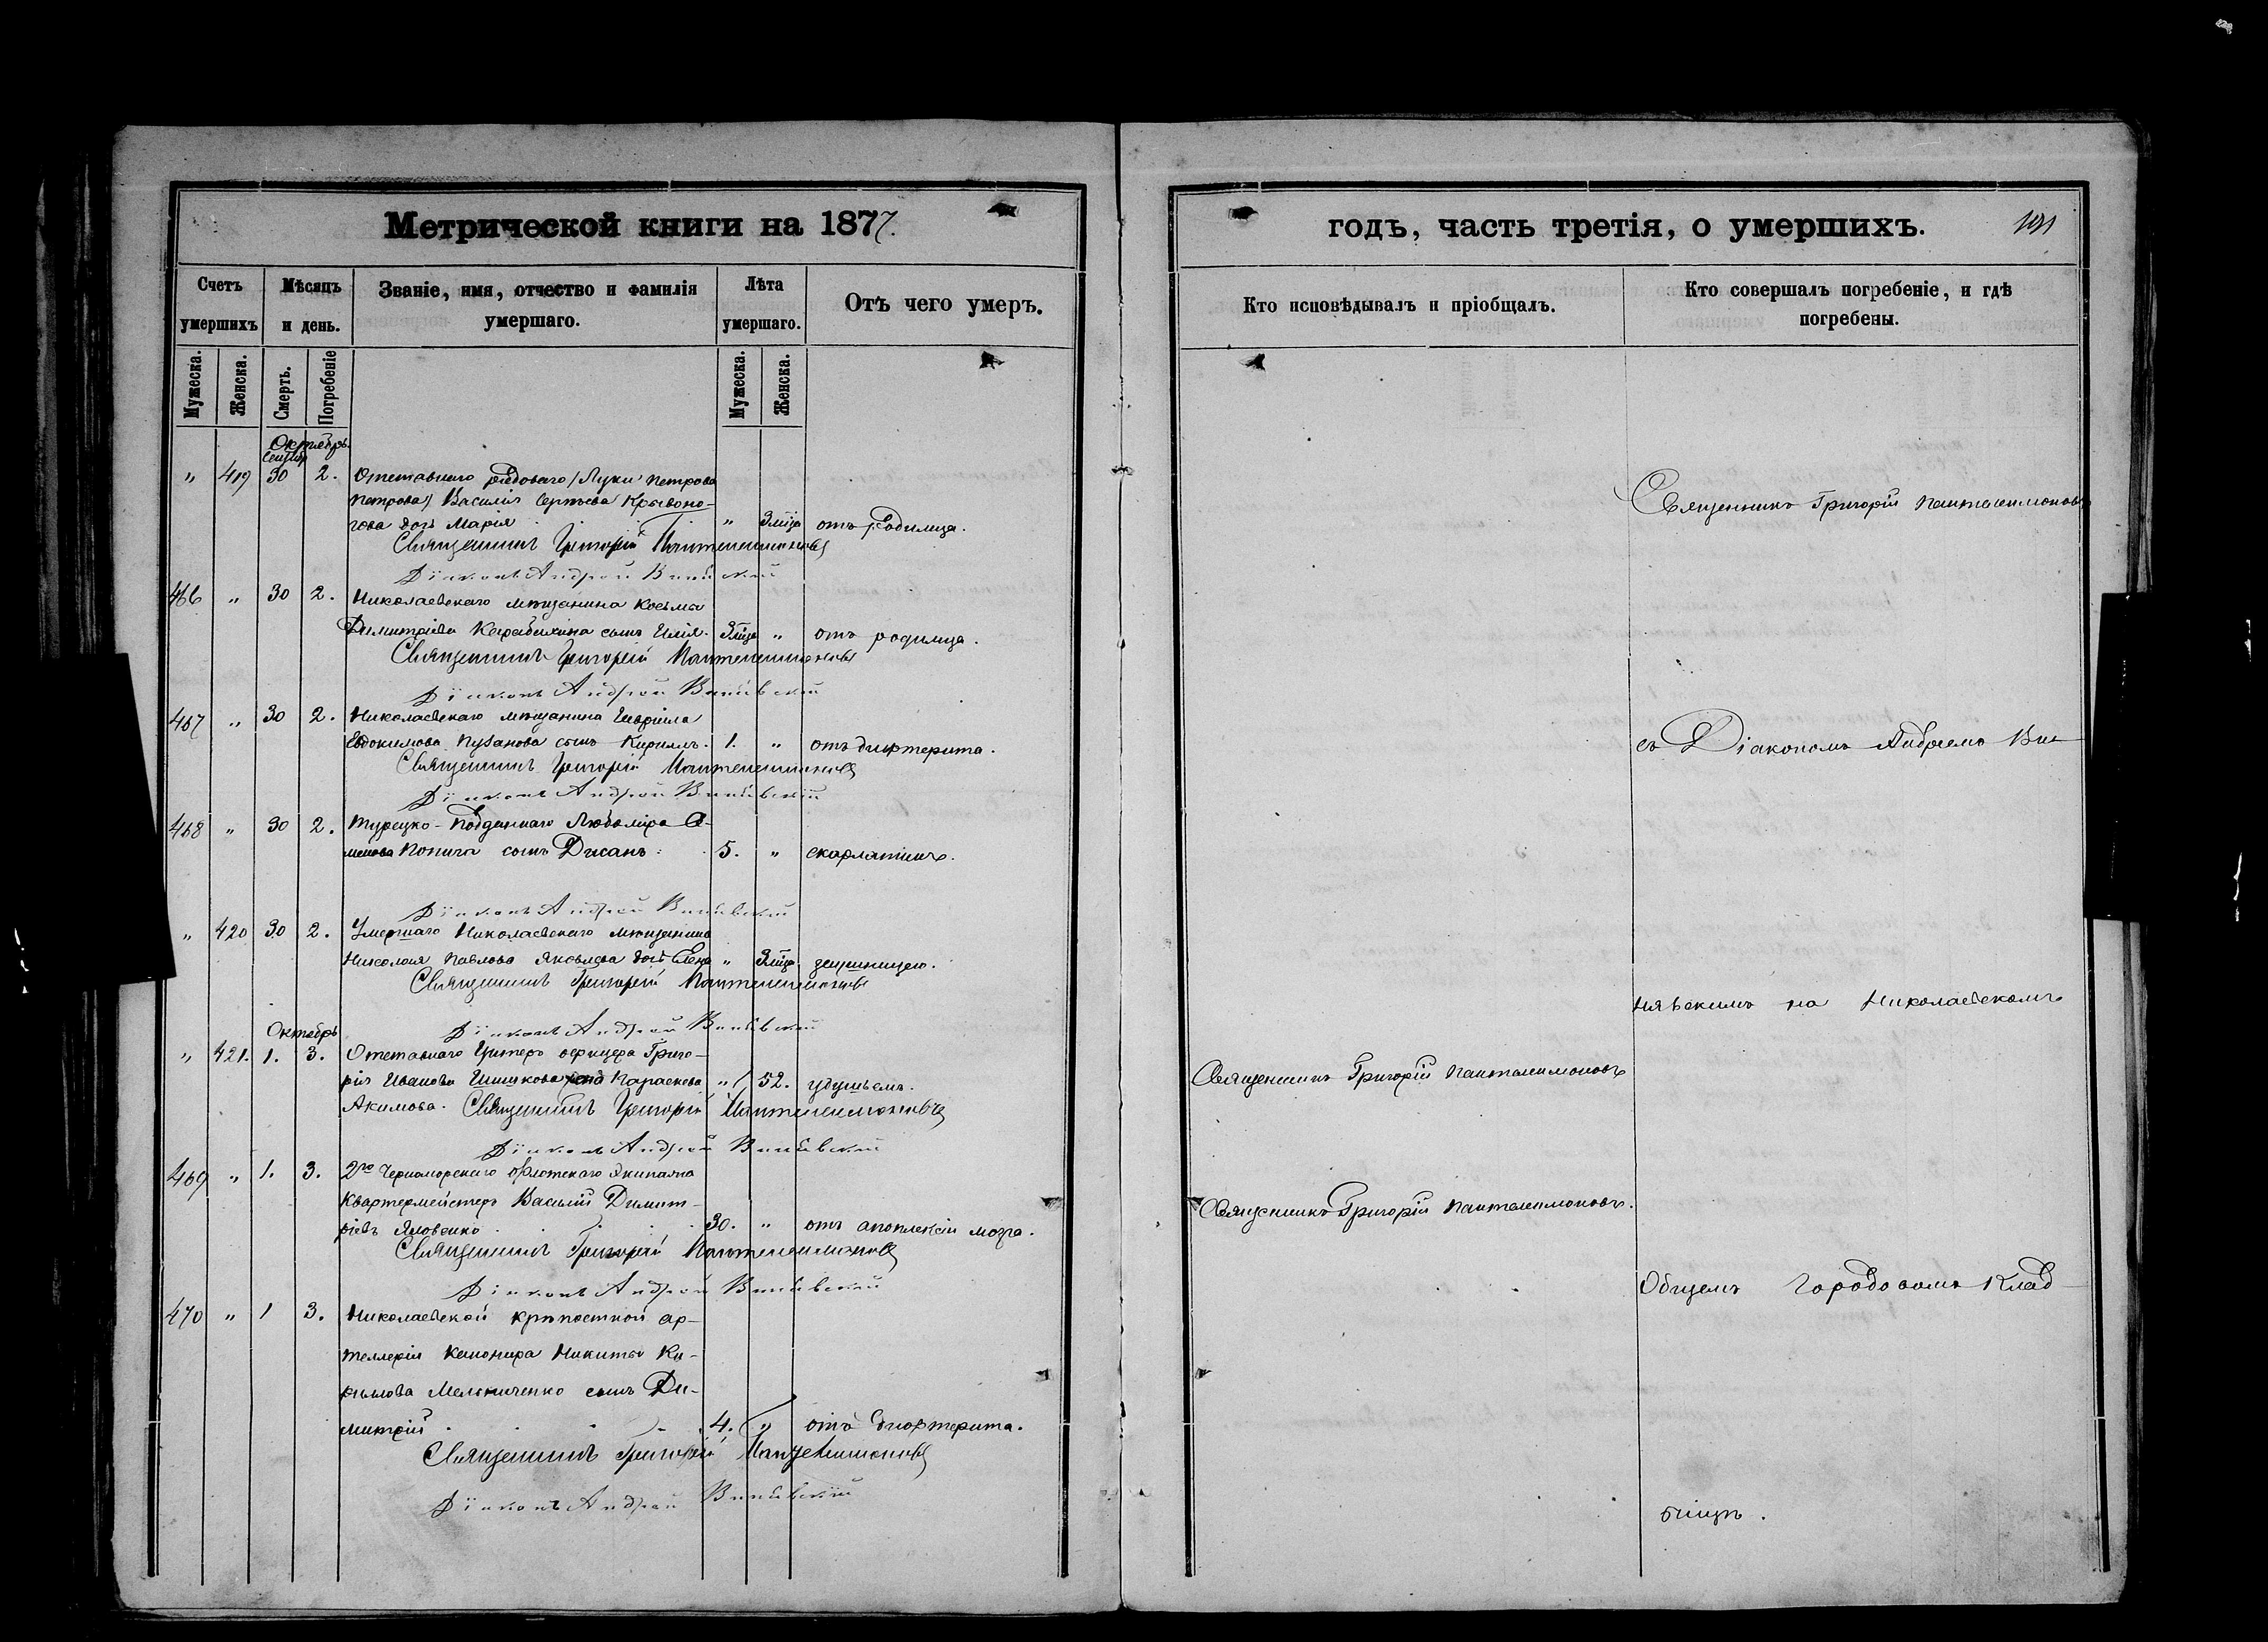 Метрической книги на 1877.
Счетъ умершихъ
Мѣсяцъ и день.
Званіе, имя, отчество и фамилія умершаго.
Лѣта умершаго.
Отъ чего умеръ.
Мужеска.
Женска.
Смерть.
Погребеніе
Мужеска.
Женска.
Октябрь.
Сентяб
" 419 30 2. Отставнаго рядоваго (Луки Петрова
Петрова) Василія Сергѣева Кривоно-
гова дочь Марія " 3 мѣца отъ родимца.
Священникъ Григорій Пантелеимоновъ
Діаконъ Андрей Винявскій
466 " 30 2. Николаевскаго мѣщанина Косьмы
Димитріева Карабихина сынъ Илія. 3 мѣца " отъ родимца.
Священникъ Григорій Пантелеимоновъ
Діаконъ Андрей Винявскій
467 " 30 2. Николаевскаго мѣщанина Гавріила
Евдокимова Пузанова сынъ Кириллъ. 1. " отъ дифтерита.
Священникъ Григорій Пантелеимоновъ
Діаконъ Андрей Винявскій
468 " 30 2. Турецко-подданнаго Любоміра
Попича сынъ 5. " скарлатина.
Діаконъ Андрей Винявскій
" 420 30 2. Умершаго Николаевскаго мѣщанина
Николая Павлова Яковлева дочь Елена " 3 мѣца
Священникъ Григорій Пантелеимоновъ
Діаконъ Андрей Винявскій
Октябрь
" 421. 1. 3. Отставнаго Унтеръ офицера Григо-
рія Иванова Шишкова жена Параскева " 52. удушьемъ.
Акимова. Священникъ Григорій Пантелеимоновъ
Діаконъ Андрей Винявскій
469 " 1. 3. 2го Черноморскаго флотскаго экипажа
Квартермейстеръ Василій Димит-
ріевъ Яловенко 30. " отъ апоплексіи мозга.
Священникъ Григорій Пантелеимоновъ
Діаконъ Андрей Винявскій
470 " 1 3. Николаевской крѣпостной ар-
теллеріи канонира Никиты
Мельниченко сынъ Ди-
митрій 4. " отъ дифтерита.
Священникъ Григорій Пантелеимоновъ
Діаконъ Андрей Винявскій
годъ, часть третія, о умершихъ.
Кто исповѣдывалъ и пріобщалъ.
Кто совершалъ погребеніе, и гдѣ погребены.
Священникъ Григорій Пантелеимоновъ
съ Діакономъ Андреемъ Ви-
нявскимъ на Николаевскомъ
Священникъ Григорій Пантелеимоновъ
Священникъ Григорій Пантелеимоновъ.
Общемъ Городовомъ Клад-
бищѣ.